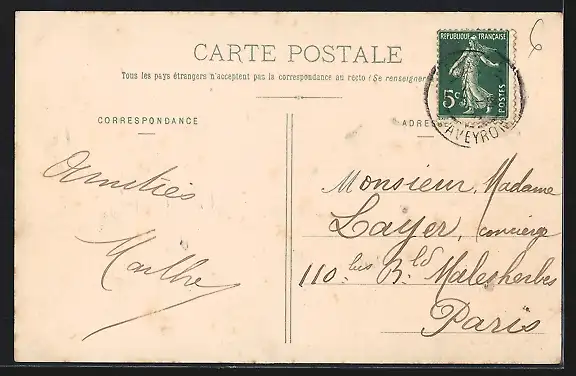 CARTE POSTALE
Tous les pays étrangers n'acceptent pas la correspondance au recto (Se renseigner
REPUBLIQUE FRANÇAISE
5c
POSTES
AVEYRON
6
CORRESPONDANCE
ADRES
Amitiés
Marthe
Monsieur, Madame
Layer, concierge
110 bis B.ld Malesherbes
Paris